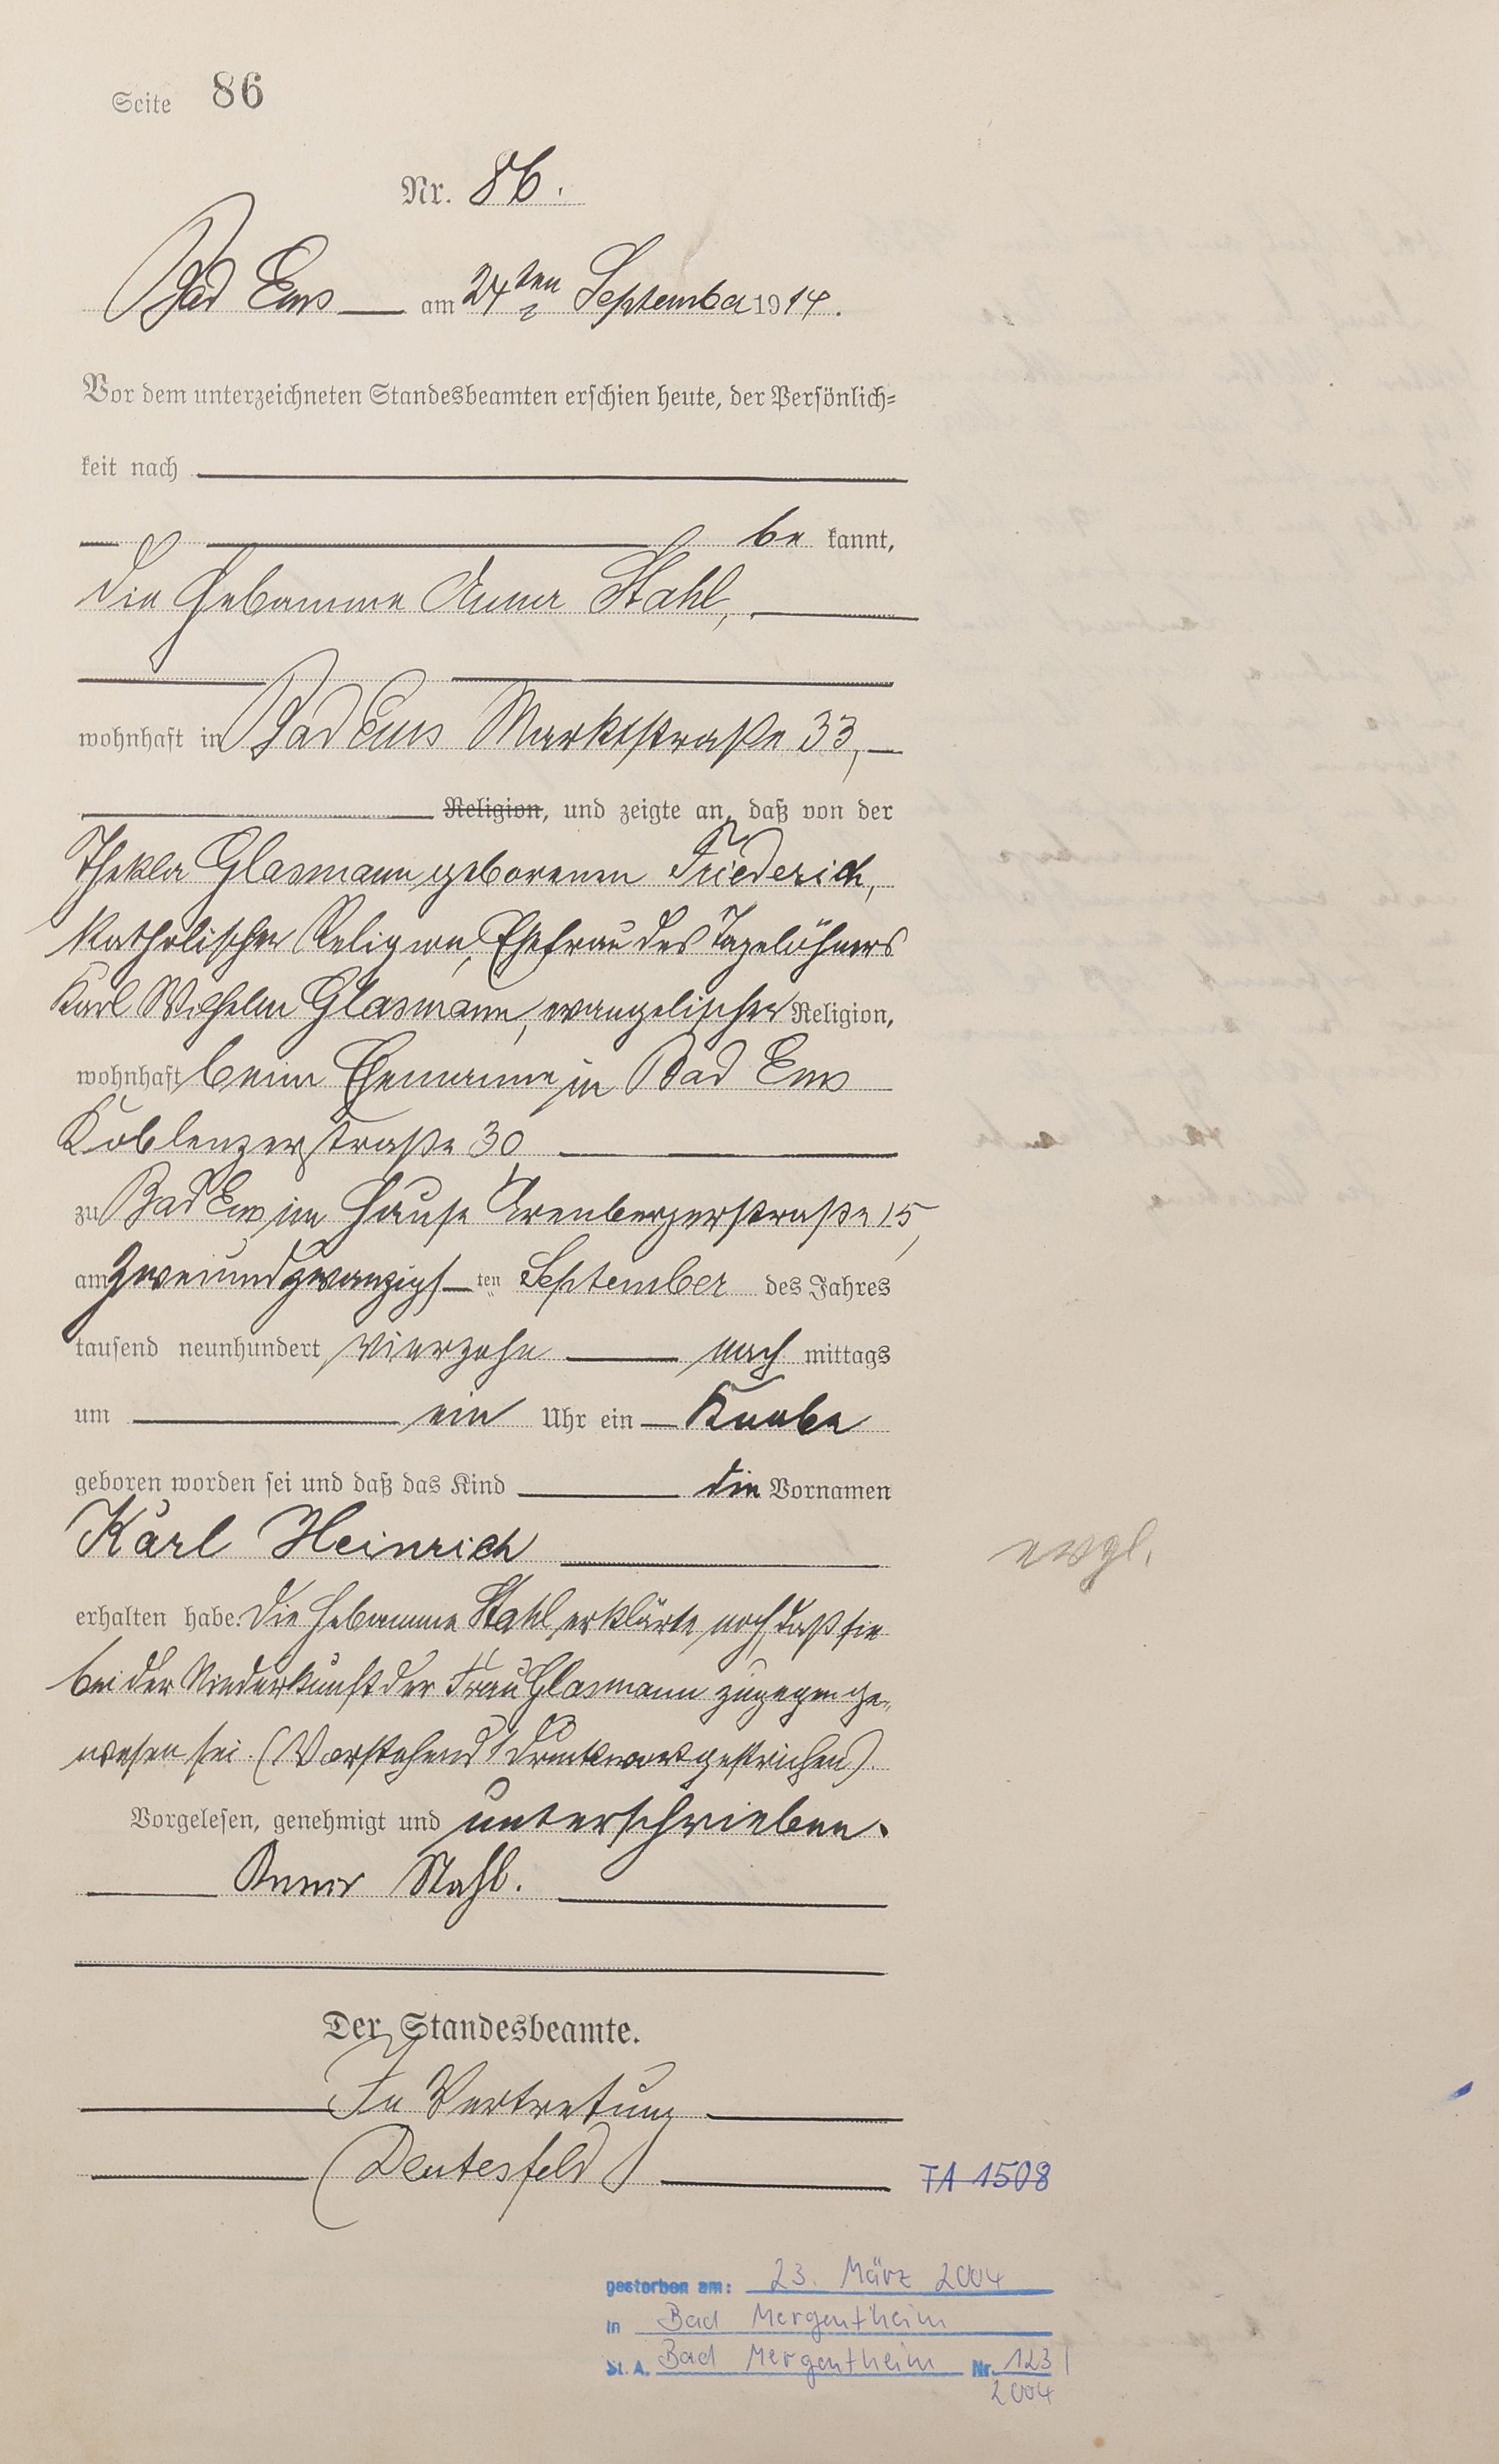 Seite 86
Nr. 86.
Bad Ems am 24ten September 1914.
Vor dem unterzeichneten Standesbeamten erschien heute, der Persönlich=
keit nach
be kannt,
die Hebamme Anna Stahl,
wohnhaft in Bad Ems Marktstraße 33,
Religion, und zeigte an, daß von der
Thekla Glasmann geborenen Friederich,
katholischer Religion, Ehefrau des Tagelöhners
Karl Wilhelm Glasmann, evangelischer Religion,
wohnhaft beim Ehemanne in Bad Ems
Koblenzerstraße 30
zu Bad Ems im Hause Arenbergerstraße 15,
am zweiundzwanzigsten September des Jahres
tausend neunhundert vierzehn nach mittags
um ein Uhr ein Knabe
geboren worden sei und daß das Kind die Vornamen
Karl Heinrich
evgl.
erhalten habe. Die Hebamme Stahl erklärte noch, daß sie
bei der Niederkunft der Frau Glasmann zugegen ge=
wesen sei. (Vorstehend 1 Druckwort gestrichen).
Vorgelesen, genehmigt und unterschrieben.
Anna Stahl.
Der Standesbeamte.
In Vertretung
TA 1508
gestorben am: 23. März 2004
in Bad Mergentheim
St. A. Bad Mergentheim Nr. 123
2004